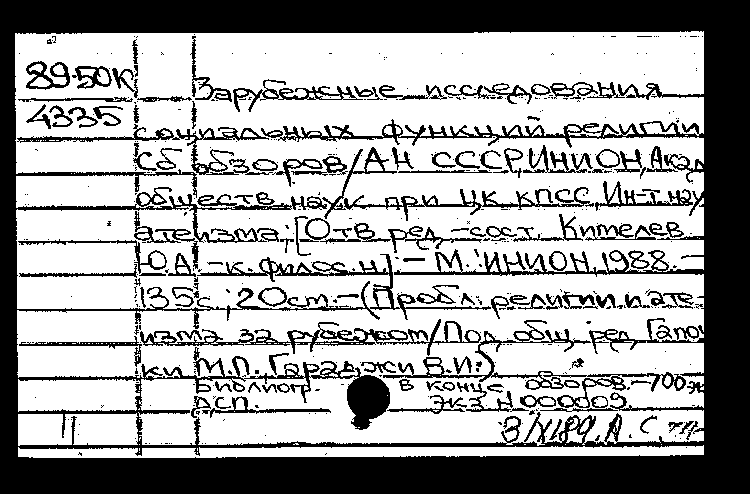 89-50К
4335
Зарубежные исследования
социальных функций религии
Сб обзоров/АН СССР, ИНИОН, Акад
обществ. наук при ЦК КПСС, Ин-т нау
атеизма; [Отв ред.-сост. Кителев
Ю.А. -к. филос. н.]. - М.: ИНИОН, 1988. -
135с.; 20см. - (Пробл. религии и ате-
изма за рубежом/Под общ. ред. Гапоч
ки М.П. Гараджи В.И.)
Библиогр. в конце обзоров. - 700 эк
ДСП. ЭКЗ. N 000009.
11 3/XI 89. А. С.